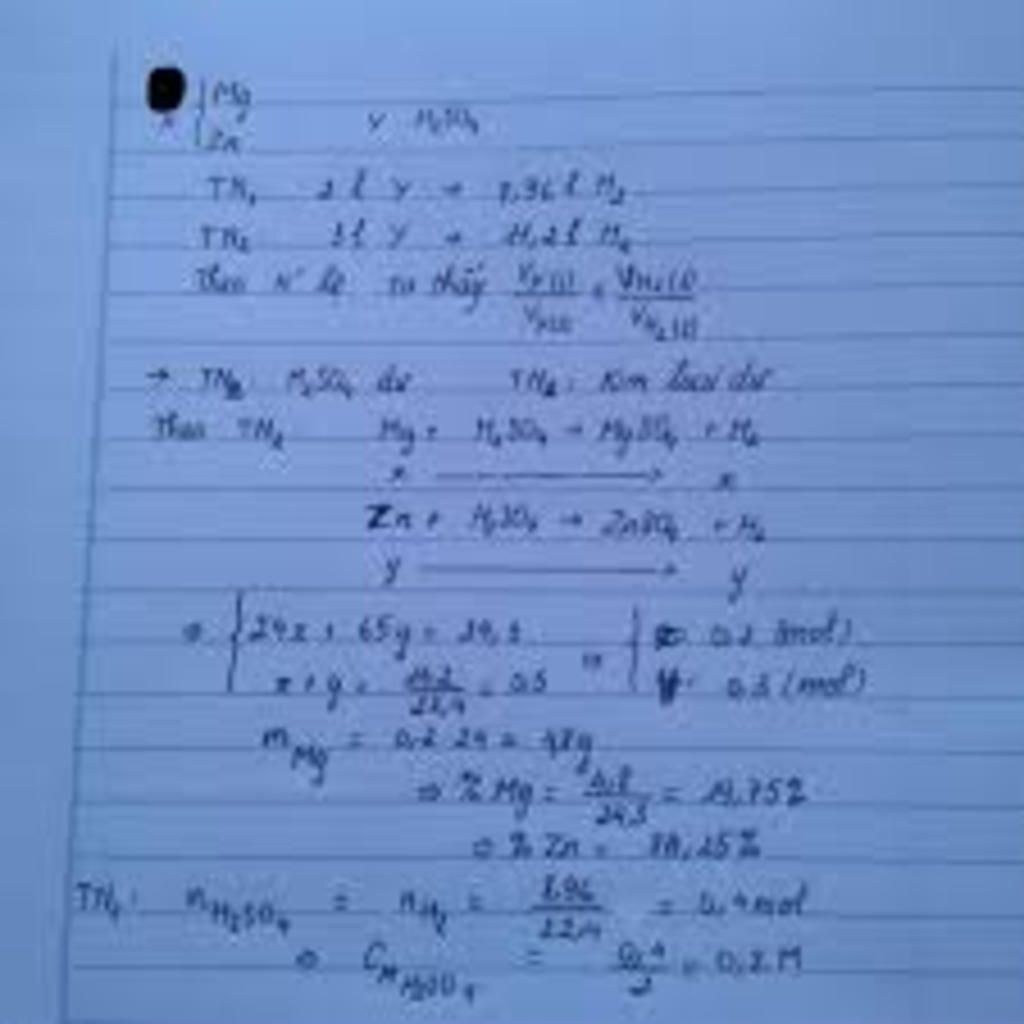 {Mg
{Zn Y H₂SO₄
TN₁ 2 l Y → 8,96 l H₂
TN₂ 3 l Y → 11,2 l H₂
Theo tỉ lệ ta thấy V_Y(1)/V_Y(2) < V_H₂(1)/V_H₂(2)
→ TN₂: H₂SO₄ dư TN₁: Kim loại dư
Theo TN₂ Mg + H₂SO₄ → MgSO₄ + H₂
x ⟶ x
Zn + H₂SO₄ → ZnSO₄ + H₂
y ⟶ y
⇒ {24x + 65y = 24,3 ⇒ {x = 0,2 (mol)
{x + y = 11,2/22,4 = 0,5 {y = 0,3 (mol)
m_Mg = 0,2.24 = 4,8g
⇒ % Mg = 4,8/24,3 = 19,75%
⇒ % Zn = 80,25%
TN₁: n_H₂SO₄ = n_H₂ = 8,96/22,4 = 0,4 mol
⇒ C_M H₂SO₄ = 0,4/2 = 0,2 M